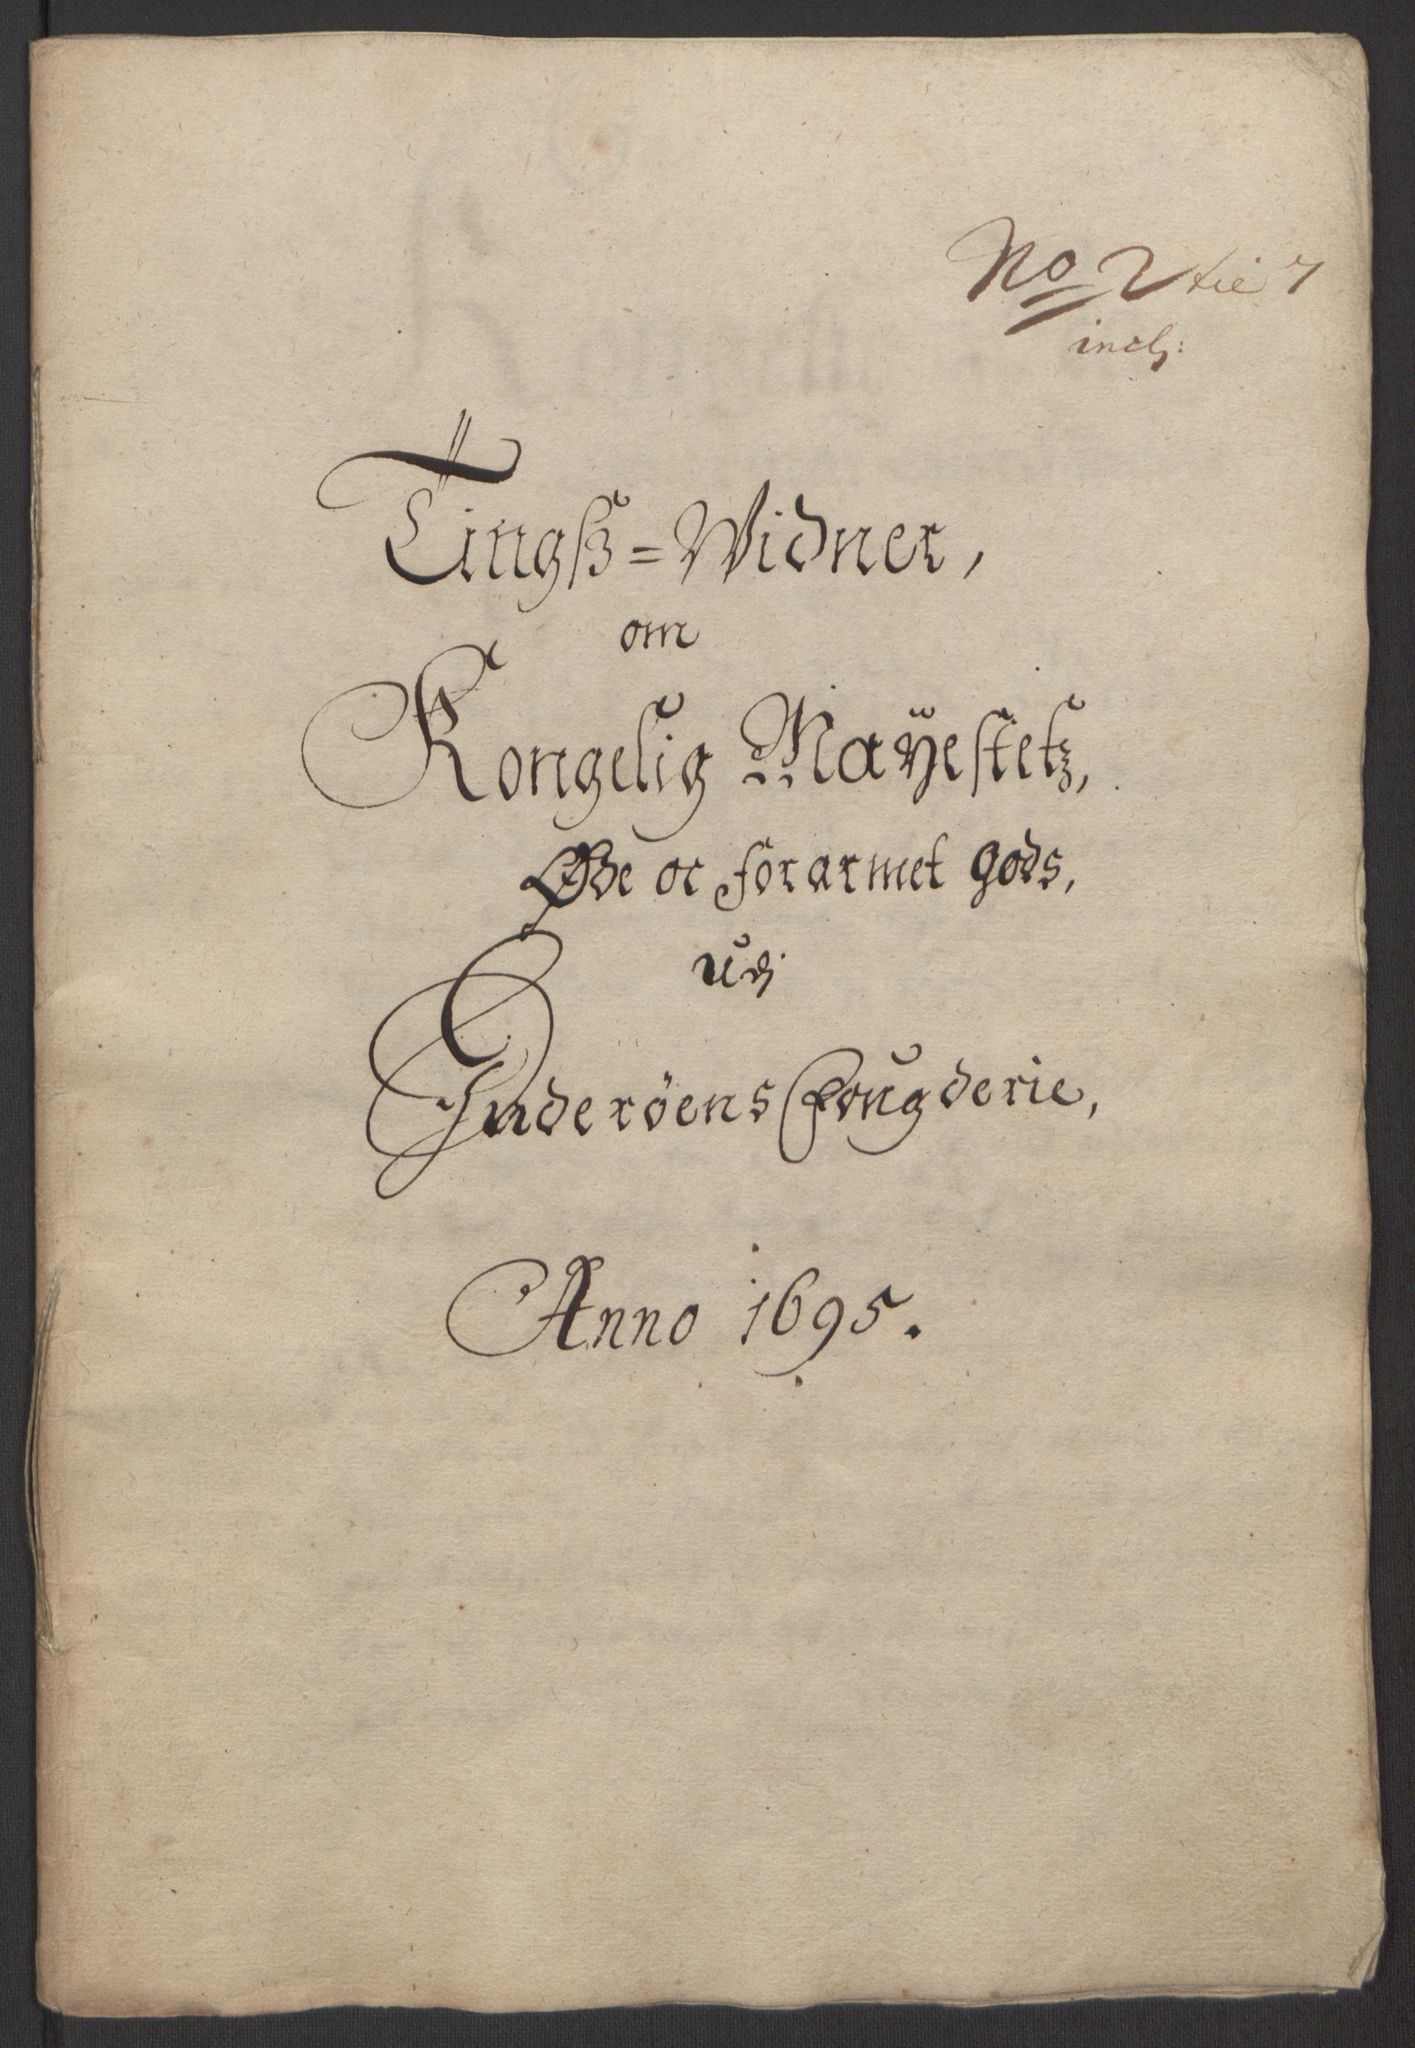 No 2 tie 7
incl:
Tingß=Widner,
om
Kongelig Mayestetz,
Øde oc forarmet Gods,
udj
Inderöens Fougderie,
Anno 1695.